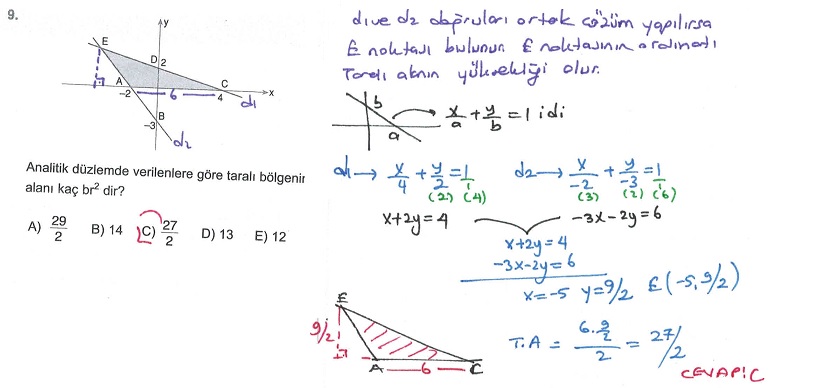 9.
y
E
D 2
A
C
-2
6
4
x
d1
B
-3
d2
Analitik düzlemde verilenlere göre taralı bölgenin
alanı kaç br² dir?
A) 29/2 B) 14 C) 27/2 D) 13 E) 12
d1 ve d2 doğruları ortak çözüm yapılırsa
E noktası bulunur E noktasının ordinatı
Taralı alanın yüksekliği olur.
b
a
x/a + y/b = 1 idi
d1 → x/4 + y/2 = 1/1
(2) (4)
d2 → x/-2 + y/-3 = 1/1
(3) (2) (6)
x+2y=4
-3x-2y=6
x+2y=4
-3x-2y=6
x=-5 y=9/2 E(-5,9/2)
E
9/2
A
6
C
T.A = 6.9/2 / 2 = 27/2
CEVAP:C